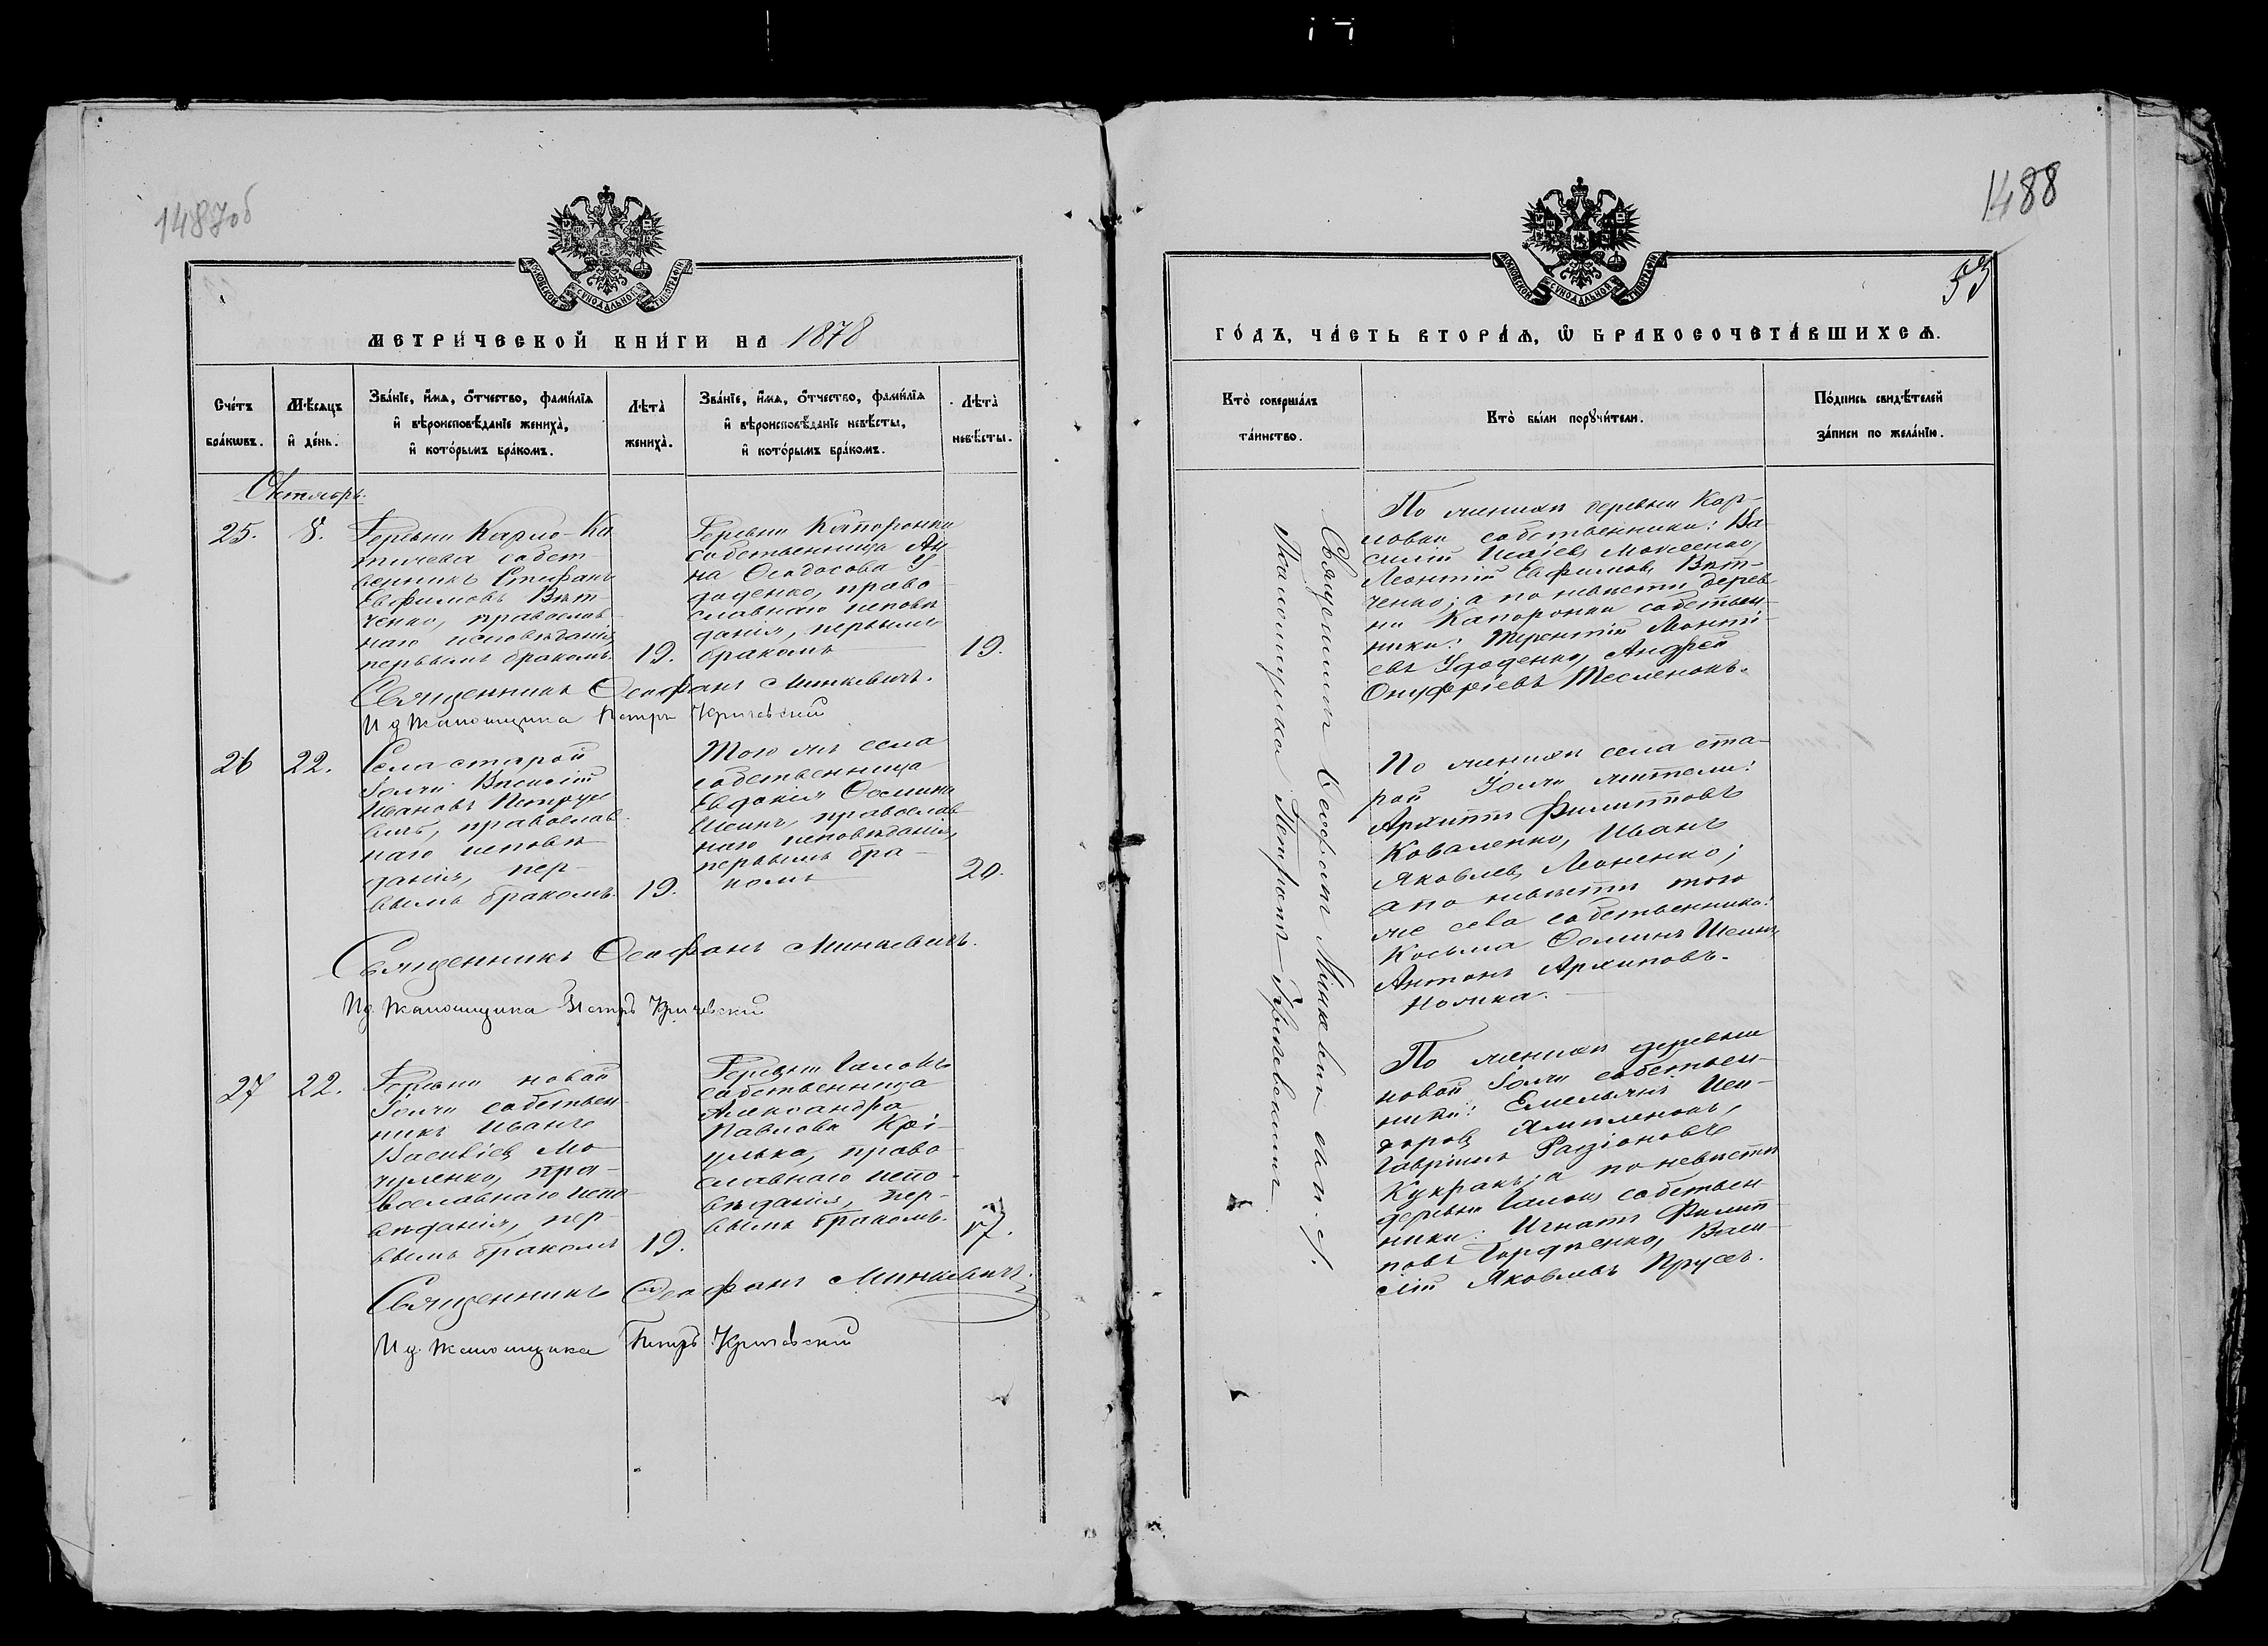 1487об
МОСКОВСКОЙ СУНОДАЛЬНОЙ ТИПОГРАФІИ
МЕТРИ́ЧЕСКОЙ КНИ́ГИ НА 1878
Сче́тъ бра́кѡвъ.
Мѣ́сяцъ и҆ де́нь.
Зва́нїе, и҆́мѧ, ѻ҆́тчество, фами́лїѧ
и҆ вѣроисповѣ́данїе жениха̀,
и҆ кото́рымъ бра́комъ.
Лѣта̀ жениха̀.
Зва́нїе, и҆́мѧ, ѻ҆́тчество, фами́лїѧ
и҆ вѣроисповѣ́данїе невѣ́сты,
и҆ кото́рымъ бра́комъ.
Лѣта̀ невѣ́сты.
Октябрь.
25.
8.
Деревни
собст-
венникъ Стефанъ
Евфимовъ Вѣт-
ченко, православ-
наго исповѣданія
первымъ бракомъ.
19.
Деревни Капоронки
собственница Ан-
на Ѳеодосова У-
доденко, право-
славнаго исповѣ-
данія, первымъ
бракомъ
19.
Священникъ Ѳеофанъ Минкевичъ.
И д Псаломщика Петръ Кричевскій
26
22.
Села старой
Василій
Ивановъ
православ-
наго исповѣ-
данія, пер-
вымъ бракомъ.
19.
Того же села
собственница
Евдокія Ѳомина
православ-
наго исповѣданія,
первымъ бра-
комъ
20.
Священникъ Ѳеофанъ Минкевичъ.
И д. Псаломщика Петръ Кричевскій
27
22.
Деревни новой
собствен-
никъ Иванъ
Василіевъ Мо-
чуленко, пра-
вославнаго испо-
вѣданія, пер-
вымъ бракомъ
19.
Деревни
собственница
Александра
Павлова
право-
славнаго испо-
вѣданія, пер-
вымъ бракомъ.
17.
Священникъ Ѳеофанъ Минкевичъ.
И д. Псаломщика Петръ Кричевскій
1488
53
МОСКОВСКОЙ СУНОДАЛЬНОЙ ТИПОГРАФІИ
ГО́ДЪ, ЧА́СТЬ ВТОРА́Ѧ, Ѽ БРАКОСОЧЕТА́ВШИХСѦ.
Кто̀ соверша́лъ
та́инство.
Кто̀ бы́ли порꙋчи́тели.
По́дпись свидѣ́телей
за́писи по жела́нїю.
Священникъ Ѳеофанъ Минкевичъ
Псаломщикъ Петромъ Кричевскимъ
По женихѣ деревни Кар-
ловки собственники: Ва-
силій Исаіевъ Моисеенко,
Леонтій Евфимовъ Вѣт-
ченко; а по невѣстѣ дерев-
ни Капоронки собствен-
ники: Терентій Леонті-
евъ Удоденко, Андрей
Онуфріевъ Тесленокъ.
По женихѣ села ста-
рой жители:
Архиппъ Филипповъ
Коваленко, Иванъ
Яковлевъ Леоненко;
а по невѣстѣ того
же села собственники:
Косьма Ѳоминъ
Антонъ Архиповъ
По женихѣ деревни
новой собствен-
ники: Емельянъ Иси-
доровъ
Гавріилъ Радіоновъ
а по невѣстѣ
деревни собствен-
ники: Игнатъ Филип-
повъ Гордѣенко, Васи-
лій Яковлевъ Прусъ.